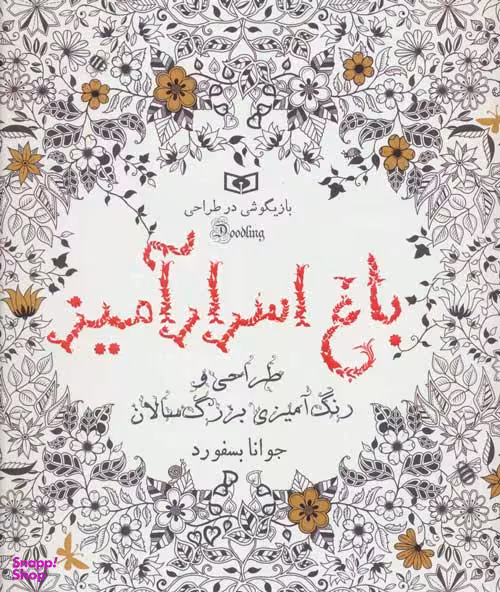 بازیگوشی در طراحی
Doodling
باغ اسرارآمیز
طراحی و
رنگ آمیزی بزرگسالان
جوانا بسفورد
Snapp!
Shop